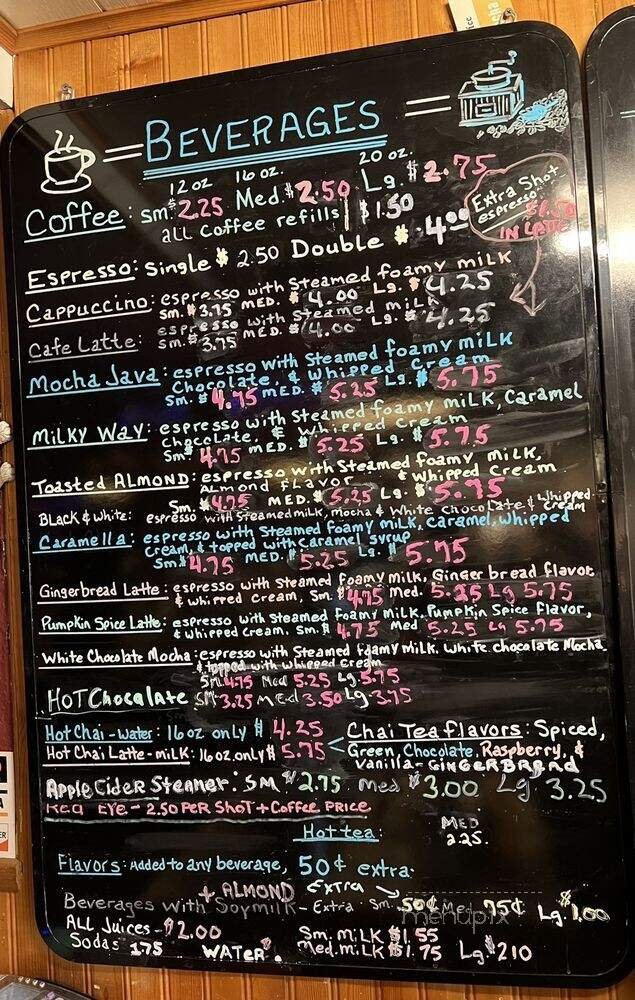 BEVERAGES
12 oz 16 oz. 20 oz.
Coffee: Sm. $2.25 Med. $2.50 Lg. $2.75
all Coffee refills $1.50
Extra Shot
espresso
$1.50
IN LATTE
Espresso: Single $2.50 Double $4.00
Cappuccino: espresso with Steamed foamy milk
Sm. $3.75 MED. $4.00 Lg. $4.25
Cafe Latte: espresso with Steamed milk
Sm. $3.75 MED. $4.00 Lg. $4.25
Mocha Java: espresso with Steamed foamy milk
Chocolate, & Whipped Cream
Sm. $4.75 MED. $5.25 Lg. $5.75
Milky Way: espresso with Steamed foamy milk, Caramel
Chocolate, & Whipped cream
Sm $4.75 MED. $5.25 Lg. $5.75
Toasted ALMOND: espresso with Steamed foamy milk,
ALMOND flavor & Whipped Cream
Sm. $4.75 MED. $5.25 Lg. $5.75
Black & White: espresso with Steamed milk, mocha & White Chocolate & Whipped Cream
Caramella: espresso with Steamed foamy milk, caramel, whipped
cream, & topped with caramel syrup
Sm $4.75 MED. $5.25 Lg. $5.75
Gingerbread Latte: espresso with Steamed foamy milk, Ginger bread flavor,
& Whipped Cream, Sm. $4.75 Med. 5.25 Lg 5.75
Pumpkin Spice Latte: espresso with Steamed foamy milk, Pumpkin Spice flavor,
& Whipped Cream. Sm. $4.75 Med 5.25 Lg 5.75
White Chocolate Mocha: espresso with Steamed foamy milk, White chocolate Mocha
& topped with Whipped Cream
Sm 4.75 Med 5.25 Lg 5.75
HOT Chocolate Sm 3.25 Med 3.50 Lg 3.75
Hot Chai - Water: 16 oz only $4.25
Hot Chai Latte - milk: 16 oz. only $5.75
Chai Tea flavors: Spiced,
Green, Chocolate, Raspberry, &
Vanilla - GINGERBREAD
Apple Cider Steamer: SM $2.75 Med $3.00 Lg 3.25
RED EYE - 2.50 PER SHOT + Coffee PRICE
Hot tea: MED
2.25.
Flavors: Added to any beverage, 50¢ extra.
+ ALMOND EXTRA
Beverages with Soymilk - Extra. Sm. 50¢ Med. 75¢ Lg. $1.00
ALL Juices - $2.00 Sm. milk $1.55
Sodas 1.75 WATER. Med. milk $1.75 Lg $2.10
menupix